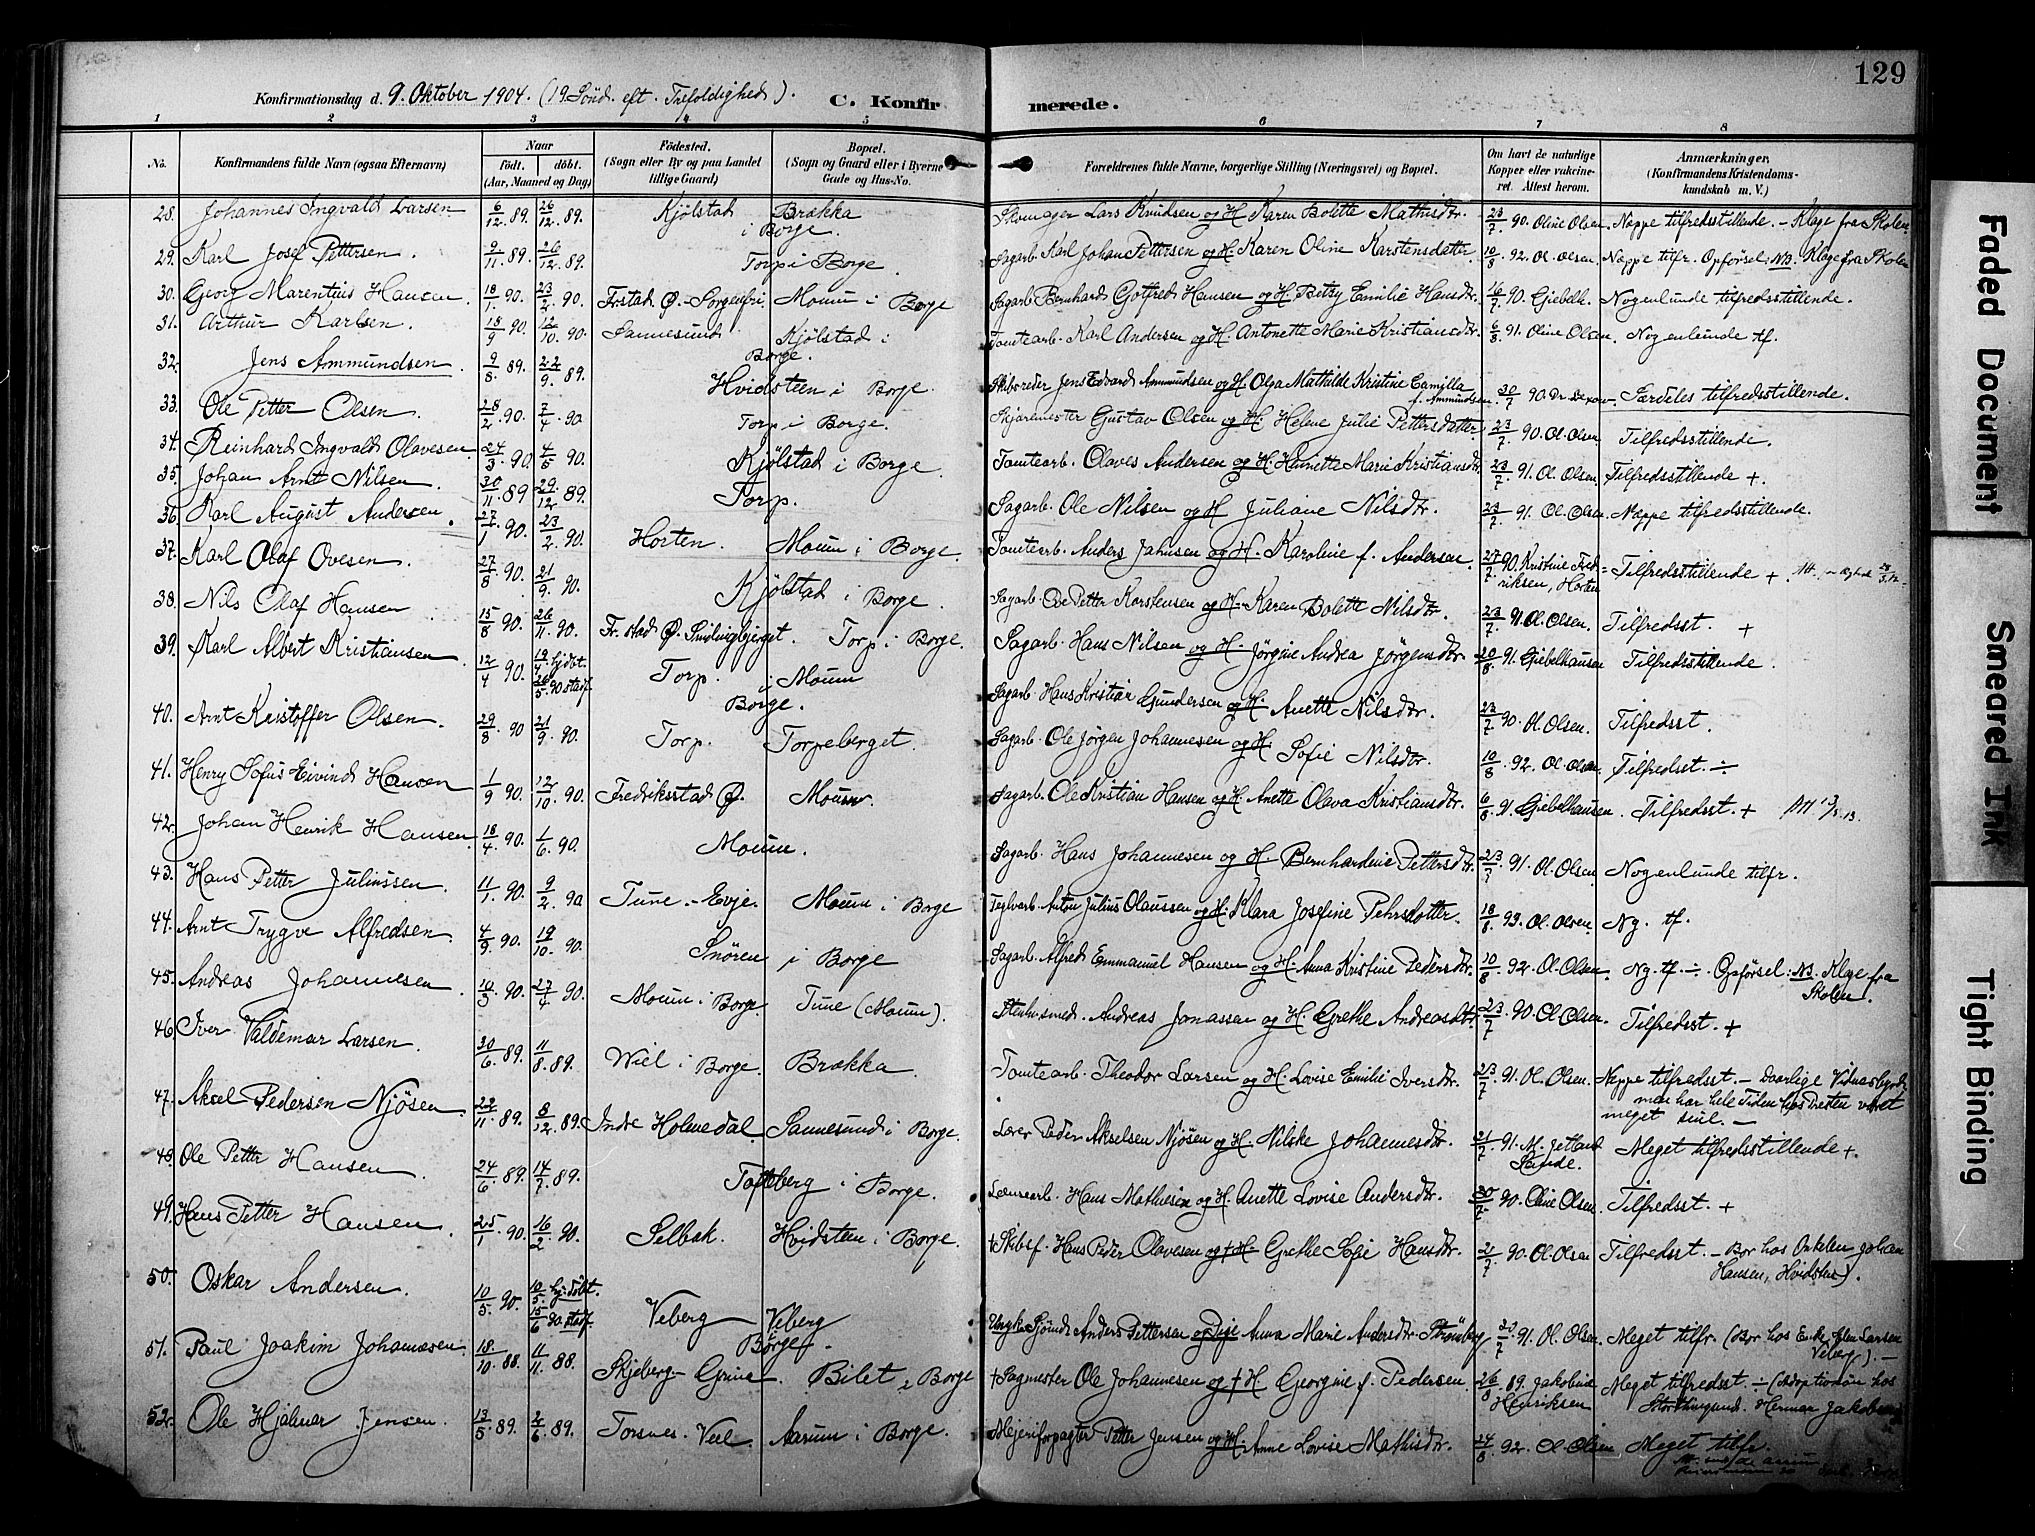 129
Konfirmationsdag d. 9. Oktober 1904. (19. Sönd. eft. Trefoldighed).
C. Konfirmerede.
1 2 3 4 5 6 7 8
No. Konfirmandens fulde Navn (ogsaa Efternavn) Naar født. døbt. (Aar, Maaned og Dag) Fødested. (Sogn eller By og paa Landet tillige Gaard) Bopæl. (Sogn og Gaard eller i Byerne Gade og Hus-No. Forældrenes fulde Navne, borgerlige Stilling (Næringsvei) og Bopæl. Om havt de naturlige Kopper eller vakcineret. Attest herom. Anmærkninger, (Konfirmandens Kristendomskundskab m. V.)
28. Johannes Ingvald Larsen 6/12 89. 26/12 89. Kjölstad Brækka i Borge. Skomager Lars Knudsen og H. Karen Bolette Mathisdtr. 23/7 90. Oline Olsen. Neppe tilfredsstillende. - Klage fra Skolen
29. Karl Josef Pettersen. 9/11 89. 26/12 89. Torp i Borge. Sagarb. Karl Johan Pettersen og H. Karen Oline Karstensdatter 10/8 92. Ol. Olsen. Neppe tilfr. Opförsel: NB. Klage fra Skolen
30. Georg Marentius Hansen. 18/1 90. 23/2 90. Frstad Ø. - Sorgenfri. Moum i Borge Sagarb. Bernhard Gotfred Hansen og H. Betsy Emilie Hansdtr. 16/7 90. Giebelh. Nogenlunde tilfredsstillende.
31. Arthur Karlsen. 18/9 90. 12/10 90. Sannesund Kjölstad i Borge. Tomtearb. Karl Andersen og H. Antonette Marie Kristiansdtr. 6/8 91. Oline Olsen. Nogenlunde tf.
32. Jens Ammundsen. 9/8 89. 22/9 89. Hvidsteen i Borge. Skibsreder Jens Edvard Ammundsen og H. Olga Mathilde Kristine Camilla f. Ammundsen. 30/7 90. Dr. Særdeles tilfredsstillende.
33. Ole Petter Olsen. 28/2 90. 7/4 90. Torp i Borge. Skjæremester Gustav Olsen og H. Helene Julie Pettersdatter 23/7 90. Ol. Olsen. Tilfredsstillende.
34. Reinhard Ingvald Olavesen. 24/3 90. 4/5 90. Kjölstad i Borge. Tomtearb. Olaves Andersen og H. Hannette Marie Kristiansdtr. 23/7 91. Ol. Olsen. Tilfredsstillende +.
35. Johan Arnt Nilsen. 30/11 89 29/12 89. Torp. Sagarb. Ole Nilsen og H. Juliane Nilsdtr. 23/7 91. Ol. Olsen. Neppe tilfredsstillende.
36. Karl August Andersen. 27/1 90. 23/2 90. Horten. Moum i Borge. Tomtearb. Anders Jahnsen og H. Karoline f. Andersen 27/7 90. Kristine Fredriksen, Horten Tilfredsstillende + Att.
37. Karl Olaf Ovesen. 27/8 90. 21/9 90. Kjölstad i Borge. Sagarb. Ove Petter Karstensen og H. Karen Bolette Nilsdtr. 23/7 91. Ol. Olsen. Tilfredsst. +
38. Nils Olaf Hansen 15/8 90. 26/11 90. Fr.stad Ø. Smidingbjerget. Torp i Borge. Sagarb. Hans Nilsen og H. Jørgine Andrea Jørgensdtr. 20/8 91. Giebelhausen Tilfredsstillende.
39. Karl Albert Kristiansen. 12/4 90. 19/4 hjdöbt. 26/5 90 stadf. Torp. Moum i Borge. Sagarb. Hans Kristian Gundersen og H. Anette Nilsdtr. 23/7 90. Ol. Olsen. Tilfredsst.
40. Arnt Kristoffer Olsen. 29/8 90 21/9 90. Torp. Torpeberget. Sagarb. Ole Jörgen Johannesen og H. Sofie Nilsdtr. 10/8 92. Ol. Olsen. Tilfredsst. ÷
41. Henry Sofus Eivind Hansen 1/9 90. 12/10 90. Fredriksstad Ø. Moum. Sagarb. Ole Kristian Hansen og H. Anette Olava Kristiansdtr. 6/8 91. Giebelhausen. Tilfredsst. + Att
42. Johan Henrik Hansen. 18/4 90. 1/6 90. Moum. Sagarb. Hans Johannesen og H. Bernhardine Pettersdtr. 23/7 91. Ol. Olsen. Nogenlunde tilfr.
43. Hans Petter Juliussen. 11/1 90. 9/2 90 Tune. - Evje. Moum i Borge Teglarb. Anton Julius Olaussen og H. Klara Josefine Pehrsdatter. 18/8 93. Ol. Olsen. Ng. tf.
44. Arnt Trygve Alfredsen. 4/9 90. 19/10 90. Snören i Borge Sagarb. Alfred Emmanuel Hansen og H. Anna Kristine Pedersdtr. 10/8 92. Ol. Olsen. Ng. tf. ÷ Opførsel: NB. Klage fra Skolen.
45. Andreas Johannesen. 10/3 90. 27/4 90. Moum i Borge. Tune (Moum). Stenhusmed. Andreas Jonassen og H. Grethe Andreasdtr. 23/7 90. Ol. Olsen. Tilfredsst. +
46. Iver Valdemar Larsen. 30/6 89. 11/8 89. Wiel i Borge. Brækka. Tomtearb. Theodor Larsen og H. Lovise Emilie Iversdtr. 23/7 91. Ol. Olsen. Neppe tilfredsst. - Daarlige Vidnesbyrd, men har hele Tiden hos Presten været meget snil. -
47. Aksel Pedersen Njösen. 22/11 89. 8/12 89. Indre Holmedal Sannesund i Borge. Lærer Peder Akselsen Njösen og H. Nilske Johannesdtr. 21/7 91. M. Jetland Sande. Meget tilfredsstillende +.
48. Ole Petter Hansen 24/6 89. 14/7 89. Tofteberg i Borge. Lænsearb. Hans Mathisen og H. Anette Lovise Andersdtr. 30/7 90. Oline Olsen. Tilfredsst. +
49. Hans Petter Hansen. 25/1 90. 16/2 90. Selbak. Hvidsteen i Borge. + Skibsf. Hans Peder Olavesen og + H. Grethe Sofie Hansdtr. 21/7 90. Ol. Olsen Tilfredsst. - Bor hos Onkelen Johan Hansen, Hvidsten).
50. Oskar Andersen. 10/5 90. 10/5 hj.döbt. 15/6 90 stadf. Veberg Veberg Borge. Ungk. Sjömd. Anders Pettersen og Pige Anna Marie Andersdtr. Strömberg 23/7 91. Ol. Olsen. Meget tilfr. (Bor hos Enke Elen Larsen Veberg). -
51. Paul Joakim Johannesen. 18/10 88. 11/11 88. Skjeberg - Grime. Bilet i Borge + Sagmester Ole Johannesen og + H. Georgine f. Pedersen. 26/8 89. Jakobine Henriksen Meget tilfredsst. ÷ (Adoptionsön hos Storthingsmd. Herman Jakobsen
52. Ole Hjalmar Jensen. 13/5 89. 2/6 89. Torsnes. Veel. Aarum i Borge. Mejeriforpagter Petter Jensen og H. Anne Lovise Mathisdtr. 24/8 92. Ol. Olsen Meget tilfr.
Faded Document
Smeared Ink
Tight Binding